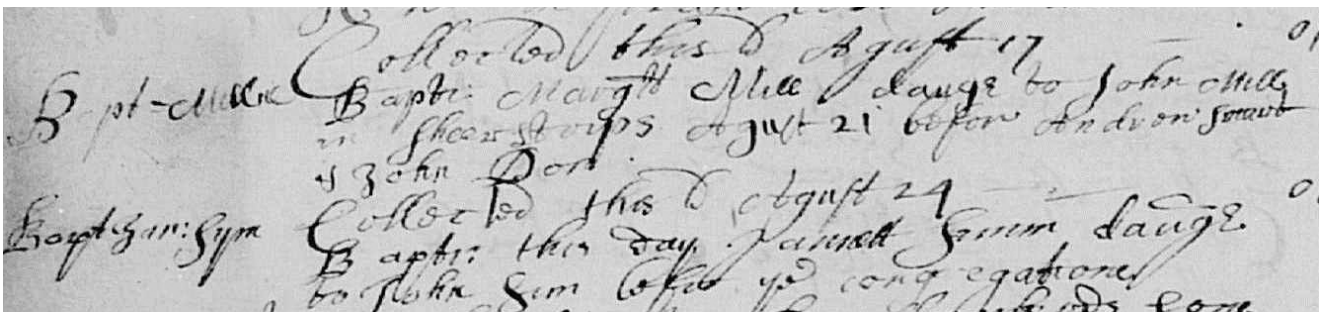 Collected this d Agust 17
Bpt-Mill Bapti: Margtt Mill daugr to John Mill
in Agust 21 befor Andrew Smart
& John Don
Collected this d Agust 24
Bapt: Jan: Sym Bapti: this day Jannett Simm daugr
to John Sim befor ye congregatione